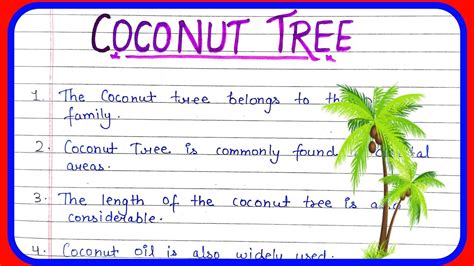 COCONUT TREE
1. The Coconut tree belongs to the
family.
2. Coconut Tree is commonly found
areas.
3. The length of the coconut tree is
considerable.
4. Coconut oil is also widely used.